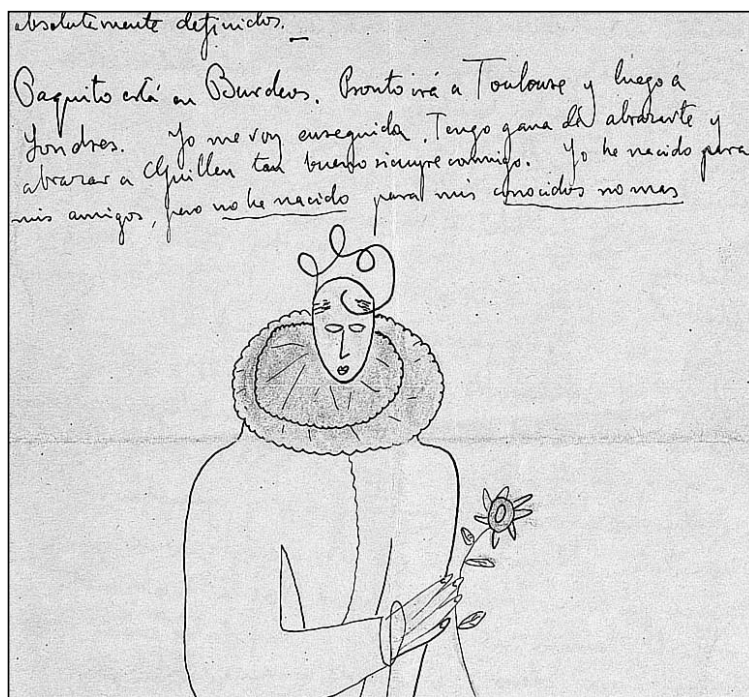 absolutamente definidos.
Paquito está en Burdeos. Pronto irá a Toulouse y luego a
Londres. Yo me voy enseguida. Tengo gana de abrazarte y
abrazar a Guillen tan bueno siempre conmigo. Yo he nacido para
mis amigos, pero no he nacido para mis conocidos no mas